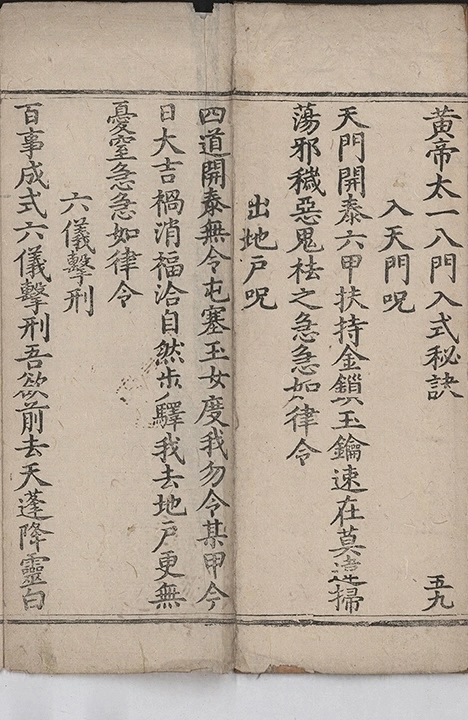 黃帝太一八門入式秘訣
五九
入天門呪
天門開泰六甲扶持金鎖玉鑰速在莫違掃
蕩邪穢惡鬼祛之急急如律令
出地戶呪
四道開泰無令屯塞玉女度我勿令某甲今
日大吉禍消福洽自然步驛我去地戶更無
憂窒急急如律令
六儀擊刑
百事成式六儀擊刑吾欲前去天蓬降靈白